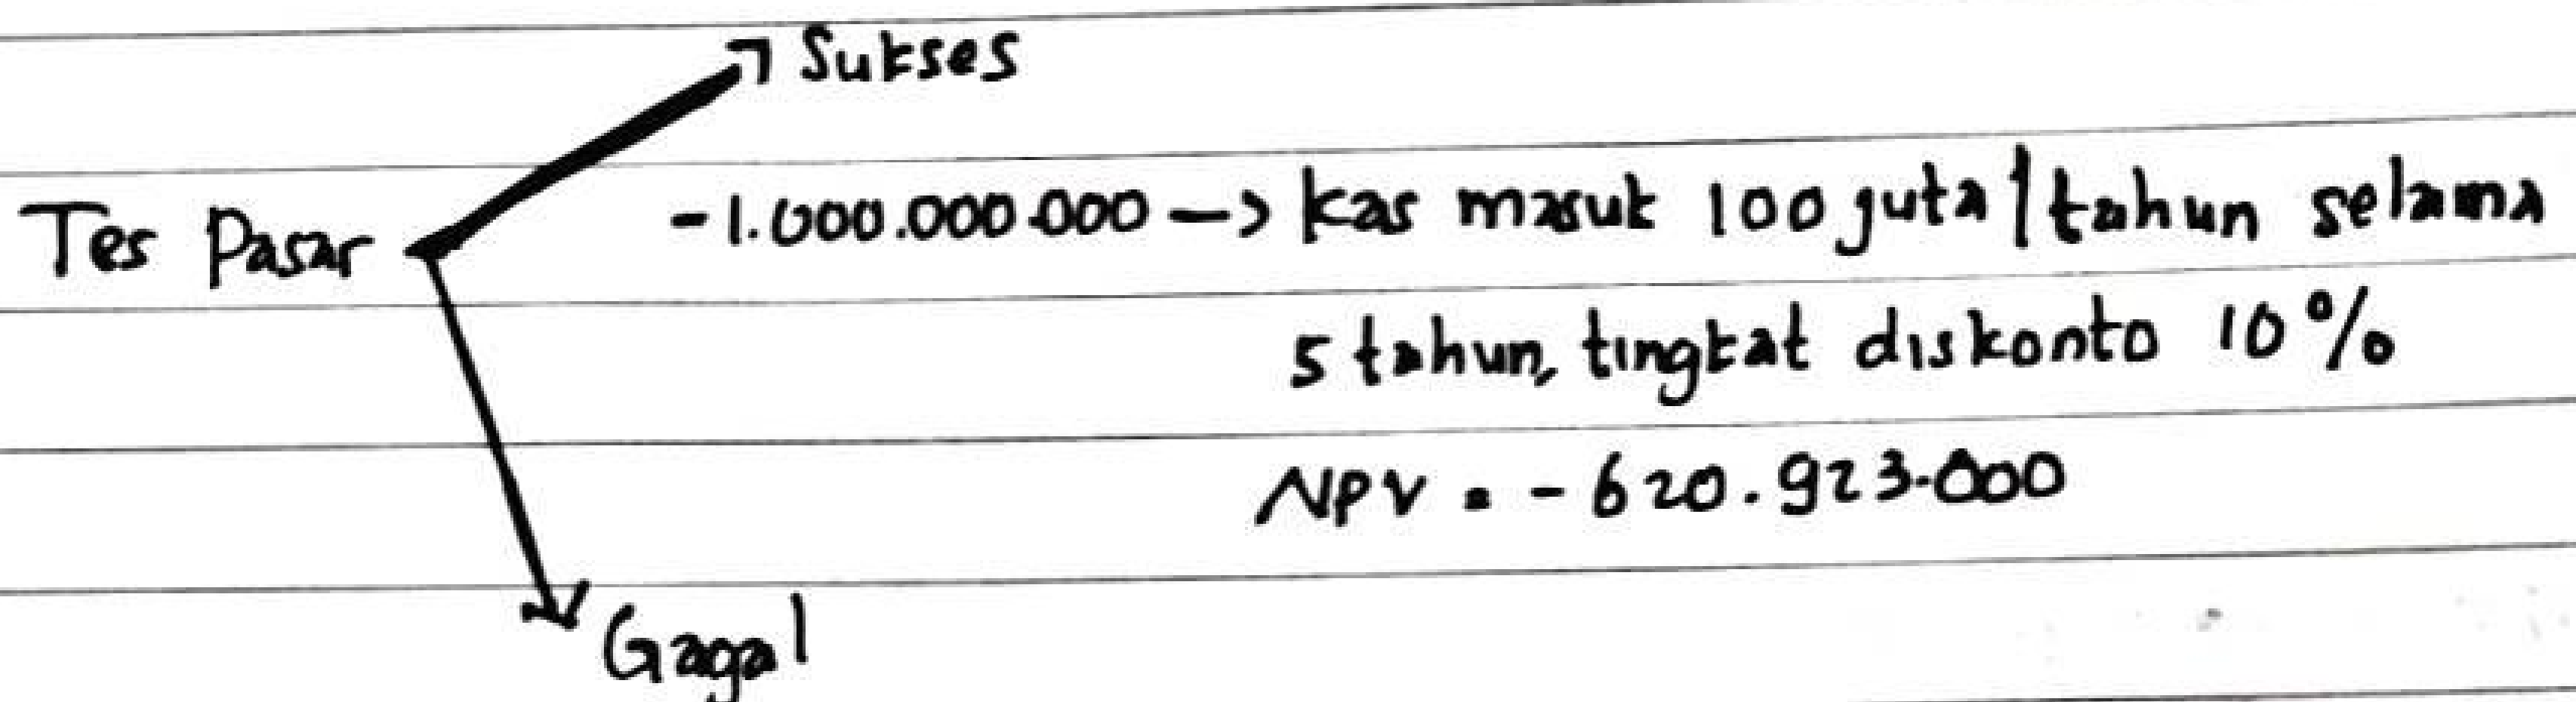 Sukses
Tes Pasar -1.000.000.000 -> kas masuk 100 juta/tahun selama
5 tahun, tingkat diskonto 10%
NPV = -620.923.000
Gagal